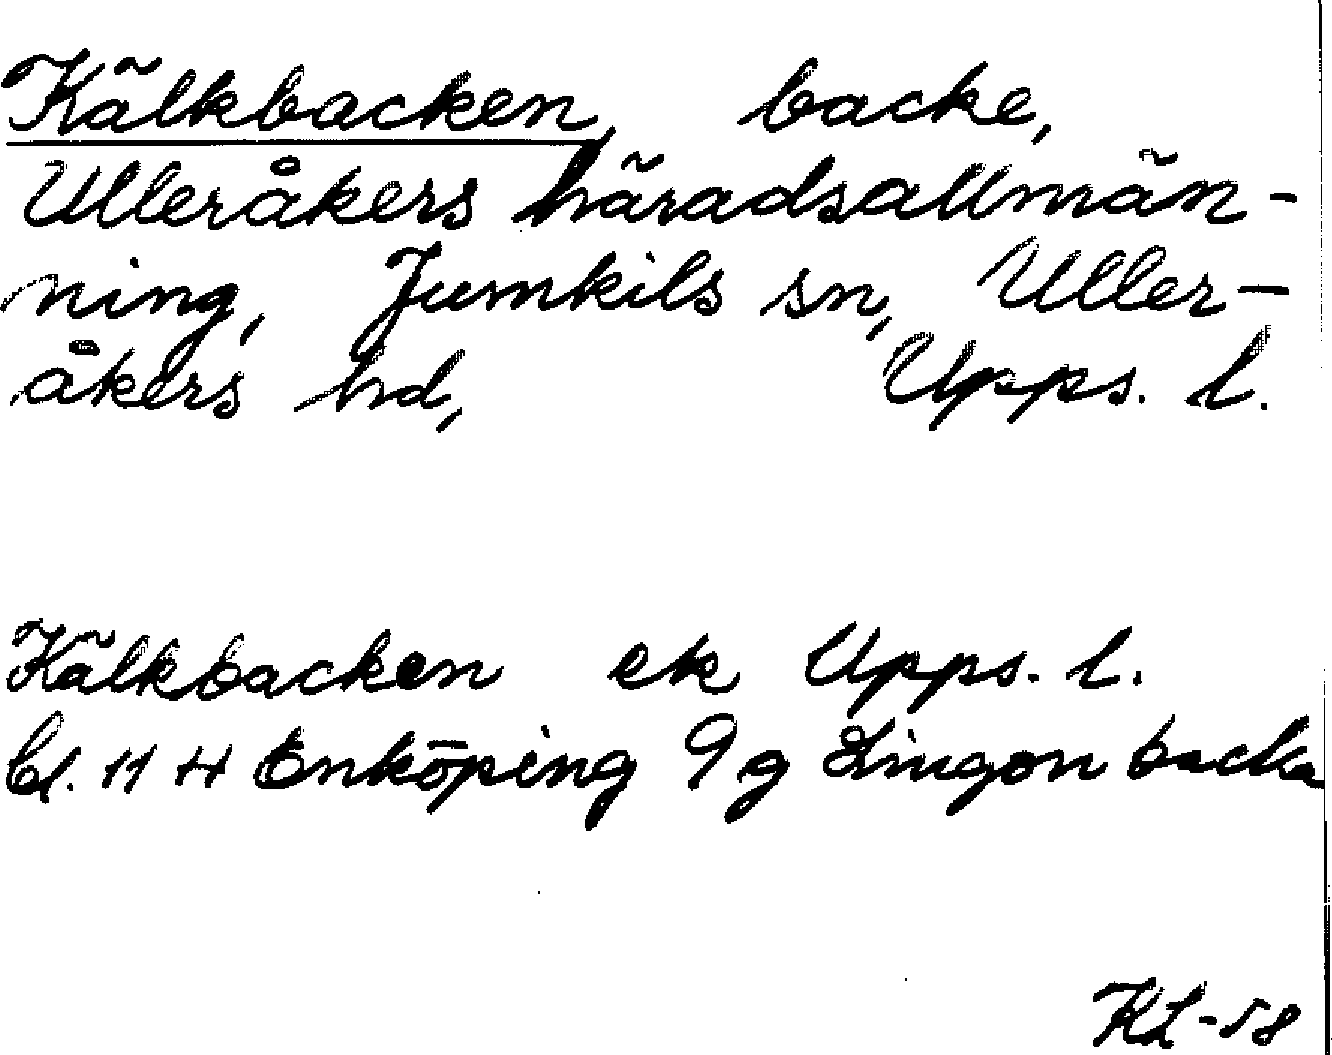 Kälkbacken, backe,
Ulleråkers häradsallmän-
ning, Jumkils sn, Uller-
åkers hd, Upps. l.
Kälkbacken ek Upps. l.
bl. 11 H Enköping 9 g Lingonbacka
KL-58